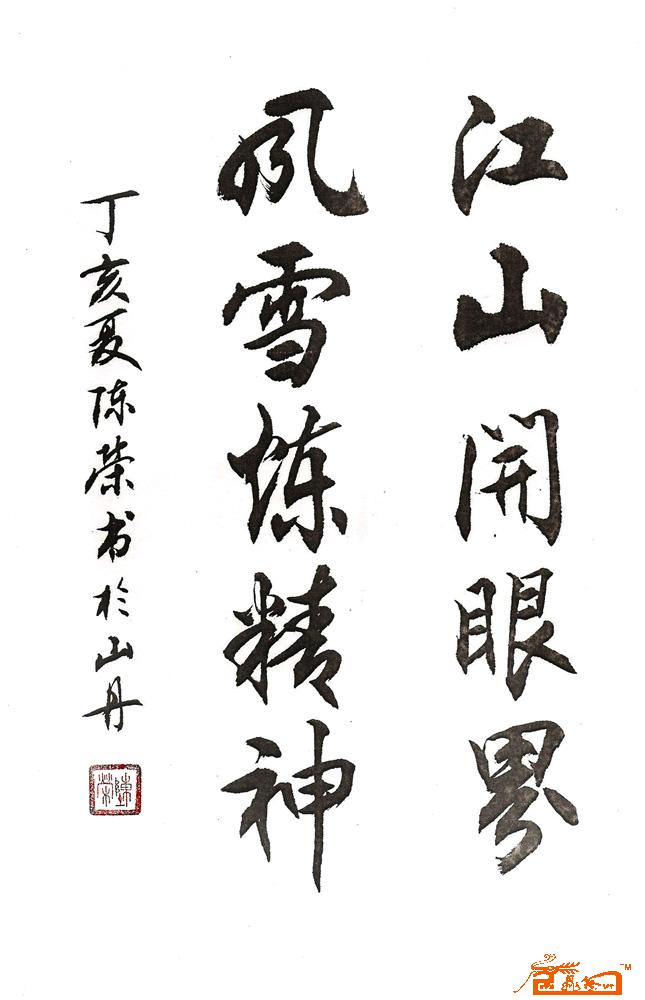 江山开眼界
风雪炼精神
丁亥夏陈荣书於山丹
陳荣
TM